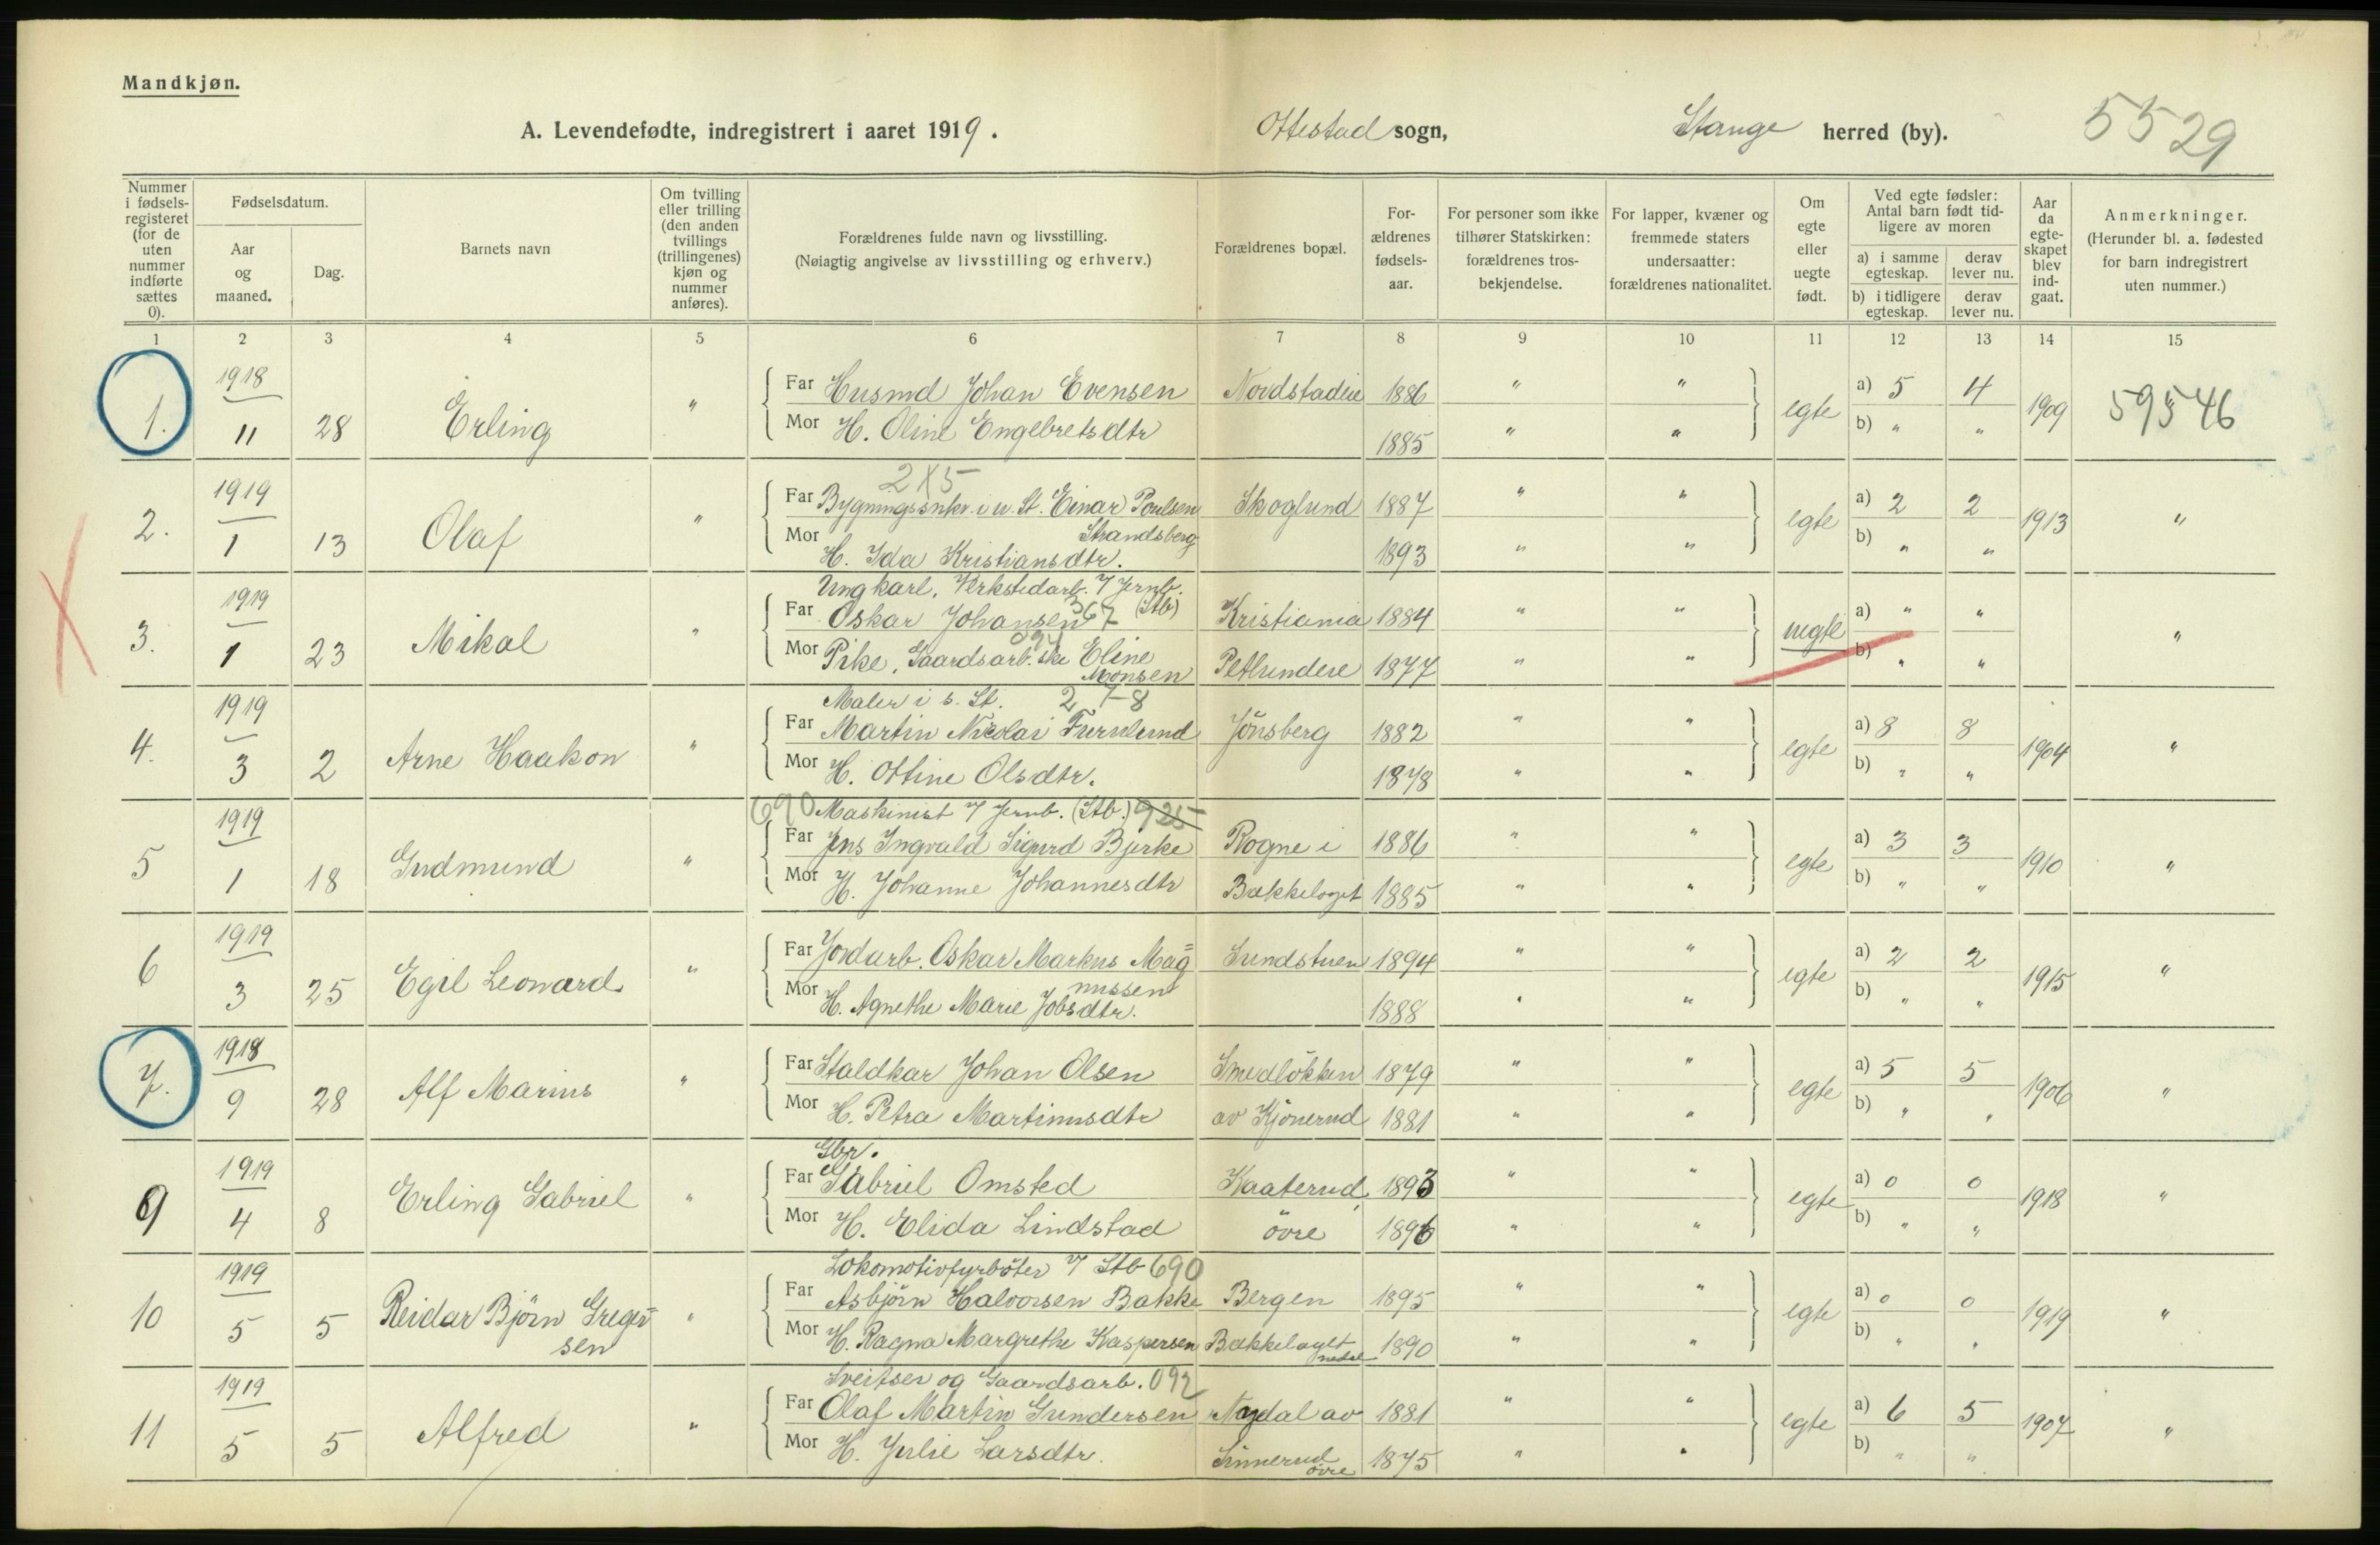 Mandkjøn.
A. Levendefødte, indregistrert i aaret 1919. Ottestad sogn, Stange herred (by). 5529
Nummer i fødselsregisteret (for de uten nummer indførte sættes 0).
Fødselsdatum.
Aar og maaned.
Dag.
Barnets navn
Om tvilling eller trilling (den anden tvillings (trillingenes) kjøn og nummer anføres).
Forældrenes fulde navn og livsstilling.
(Nøiagtig angivelse av livsstilling og erhverv.)
Forældrenes bopæl.
Forældrenes fødselsaar.
For personer som ikke tilhører Statskirken: forældrenes trosbekjendelse.
For lapper, kvæner og fremmede staters undersaatter: forældrenes nationalitet.
Om egte eller uegte født.
Ved egte fødsler: Antal barn født tidligere av moren
a) i samme egteskap. derav lever nu.
b) i tidligere egteskap. derav lever nu.
Aar da egteskapet blev indgaat.
Anmerkninger.
(Herunder bl. a. fødested for barn indregistrert uten nummer.)
1 2 3 4 5 6 7 8 9 10 11 12 13 14 15
1918
1. 11 28 Erling " Far Husmd Johan Evensen Nordstadeie 1886 " " egte a) 5 4 1909 59546
Mor H. Oline Engebretsdtr 1885 " " b) " "
2X5
1919
2. 1 13 Olaf " Far Bygningssnkr. i u. St. Einar Poulsen Skoglund 1887 " " egte a) 2 2 1913 "
Strandsberg
Mor H. Ida Kristiansdtr. 1893 " " b) " "
Ungkarl, Verkstedarb. v/ Jernb.
1919
3. 1 23 Mikal " Far Oskar Johansen 367 (Stb) Kristiania 1884 " " uegte a) " " "
Mor Pike, Gaardsarb.ske Eline Monsen Petlundeie 1877 " " b) " "
Maler i s. St. 278
1919
4. 3 2 Arne Haakon " Far Martin Nicolai Furulund Jönsberg 1882 " " egte a) 8 8 1904 "
Mor H. Ottine Olsdtr. 1878 " " b) " "
690 Maskinist v/ Jernb. (Stb.) 925
1919
5 1 18 Gudmund " Far Jens Ingvald Sigurd Bjerke Rogne i 1886 " " egte a) 3 3 1910 "
Mor H. Johanne Johannesdtr Bækkelaget 1885 " " b) " "
1919
6 3 25 Egil Leonard " Far Jordarb. Oskar Markus Mag= Sundstuen 1894 " " egte a) 2 2 1915 "
nussen
Mor H. Agnethe Marie Jobsdtr. 1888 " " b) " "
1918
7. 9 28 Alf Marius " Far Staldkar Johan Olsen Smedlökken 1879 " " egte a) 5 5 1906 "
Mor H. Petra Martinusdtr av Kjönerud 1881 " " b) " "
Gbr.
1919
9 4 8 Erling Gabriel " Far Gabriel Omsted Kaaterud 1893 " " egte a) 0 0 1918 "
Mor H. Elida Lindstad övre 1896 " " b) " "
Lokomotivfyrböter v/ Stb 690
1919
10 5 5 Reidar Björn Greger= " Far Asbjörn Halvorsen Bakke Bergen 1895 " " egte a) 0 0 1919 "
sen
Mor H. Ragna Margrethe Kaspersen Bækkelaget nedre 1890 " " b) " "
Sveitser og Gaardsarb. 092
1919
11 5 5 Alfred " Far Olaf Martin Gundersen Nydal av 1881 " " egte a) 6 5 1907 "
Mor H. Julie Larsdtr. Sinnerud övre 1875 " " b) " "